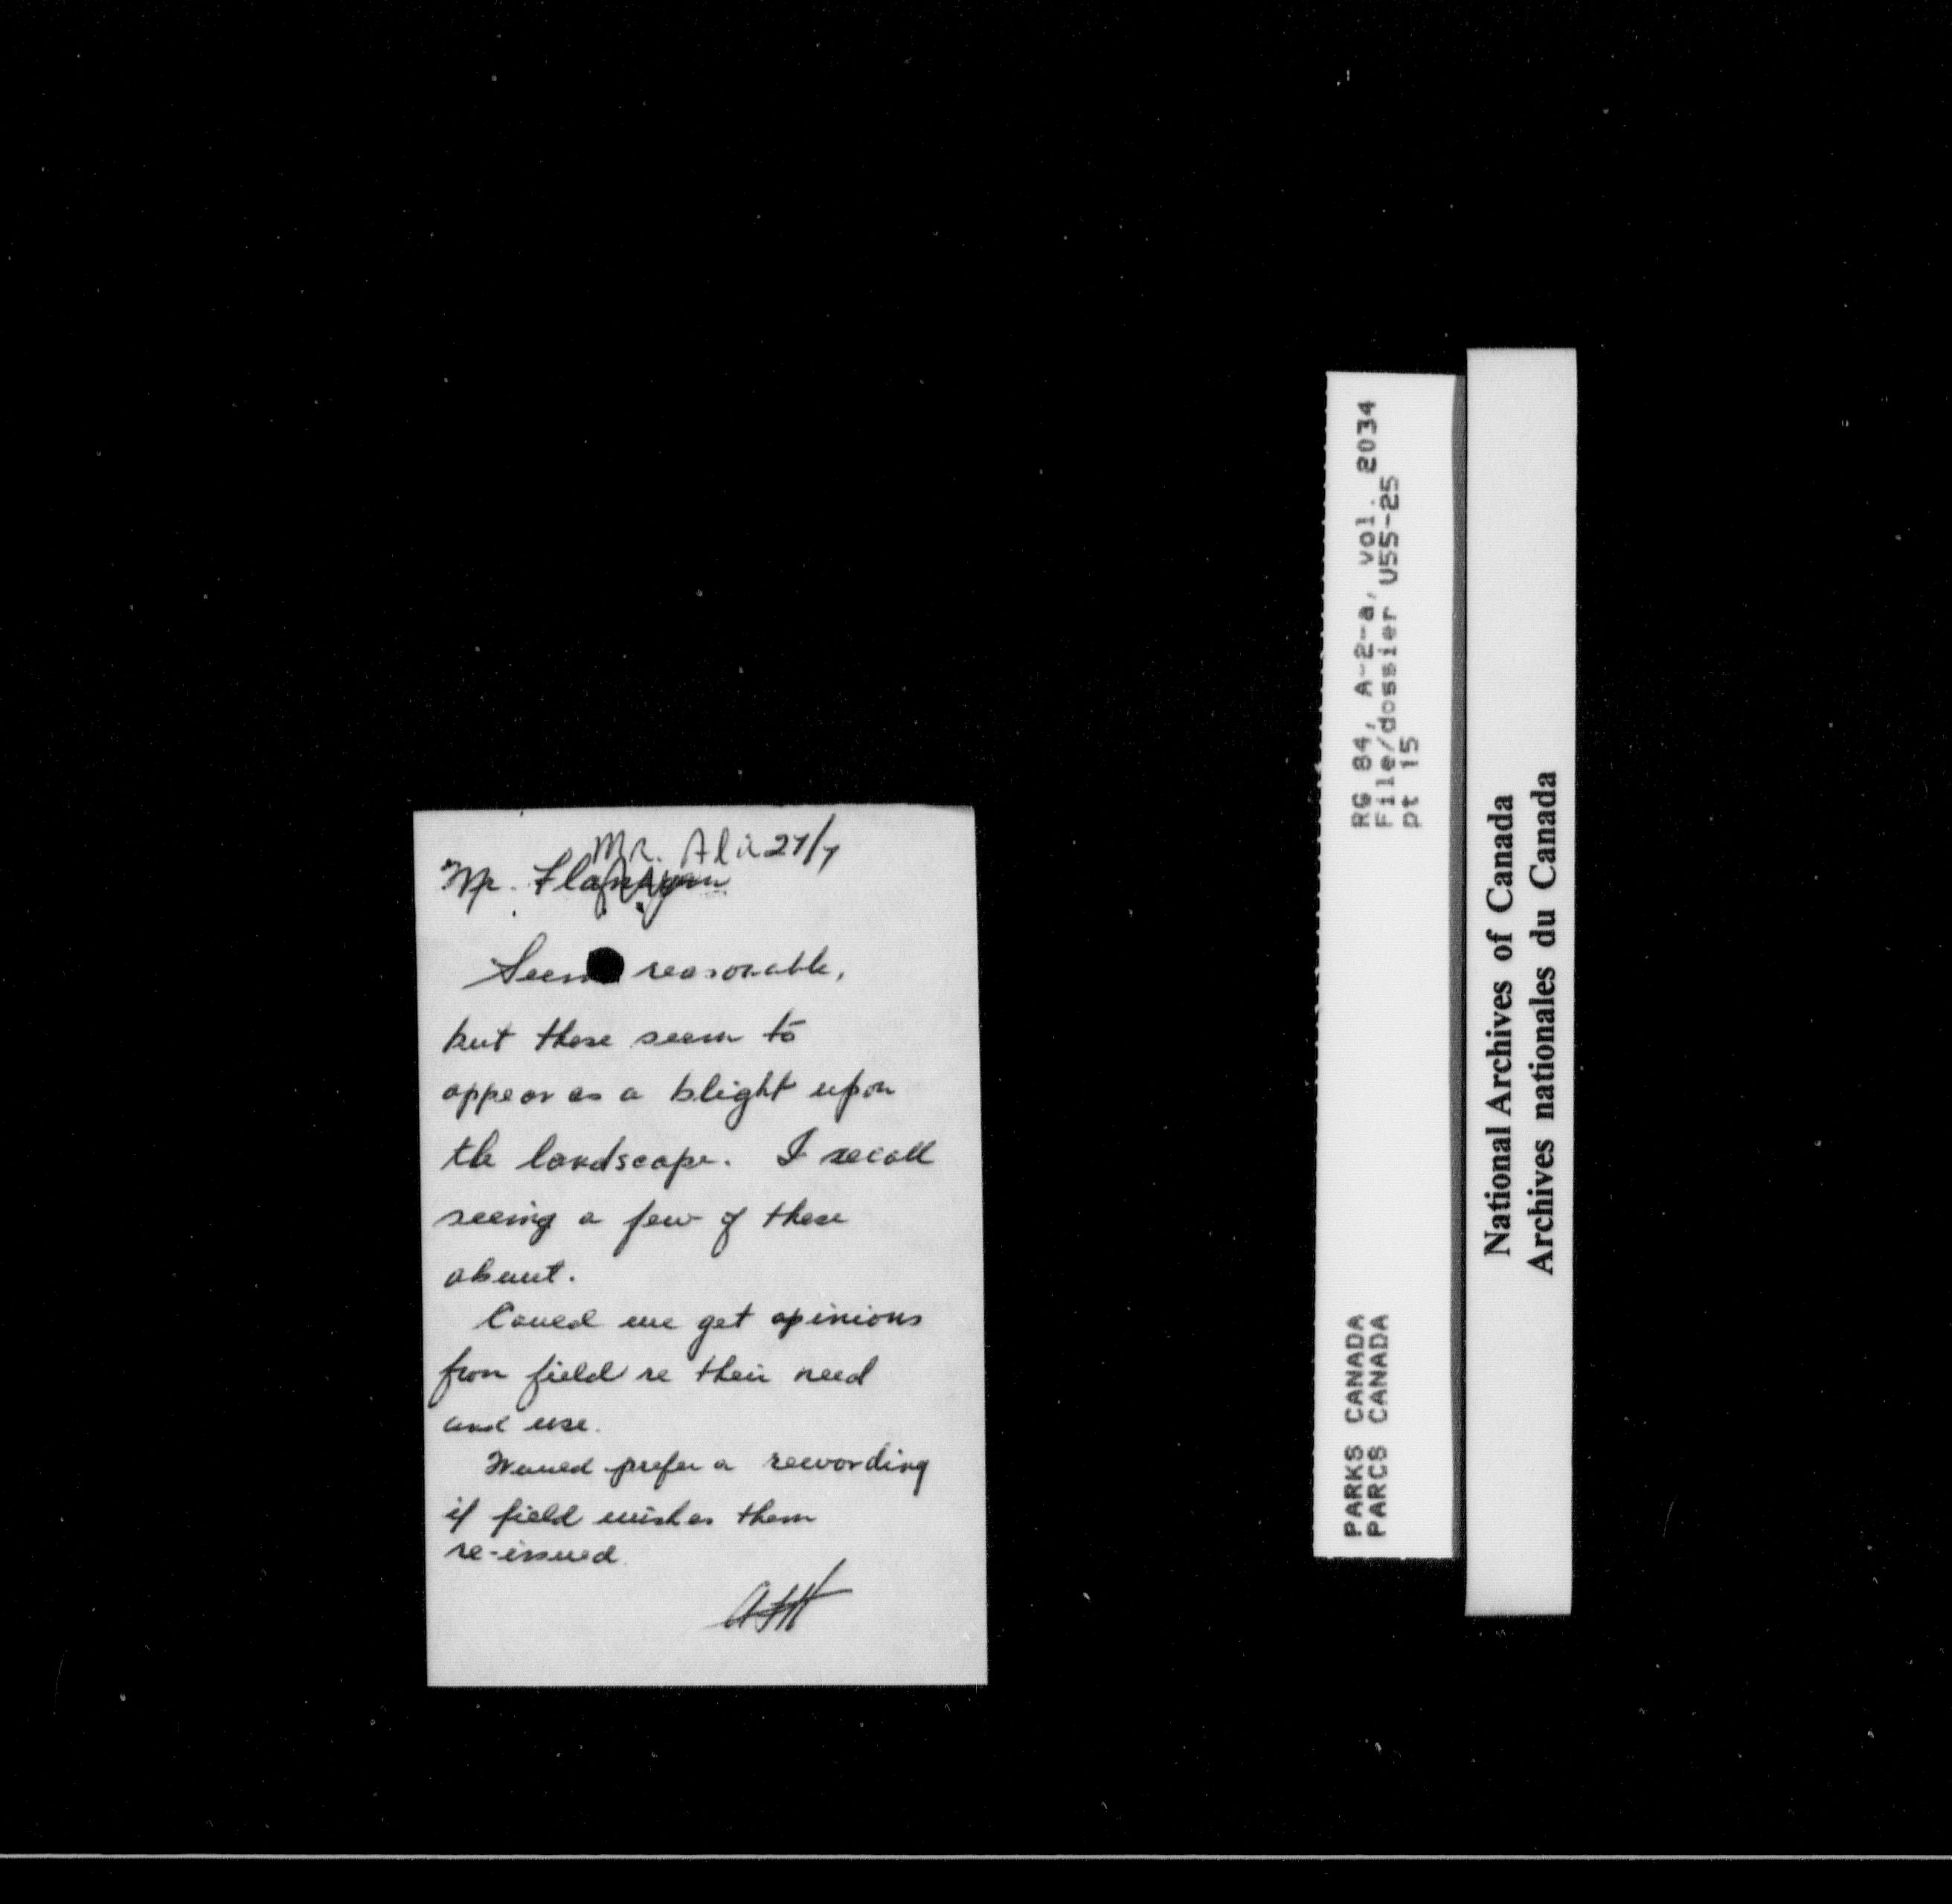 Mr. Ali 27/7
Mr. Flanagan
Seems reasonable,
but these seem to
appear as a blight upon
the landscape. I recall
seeing a few of these
about.
Could we get opinions
from field re their need
and use.
Would prefer a rewording
if field wishes them
re-issued.
AFH
RG 84, A-2-a, vol. 2034
File/dossier U55-25
pt 15
PARKS CANADA
PARCS CANADA
National Archives of Canada
Archives nationales du Canada